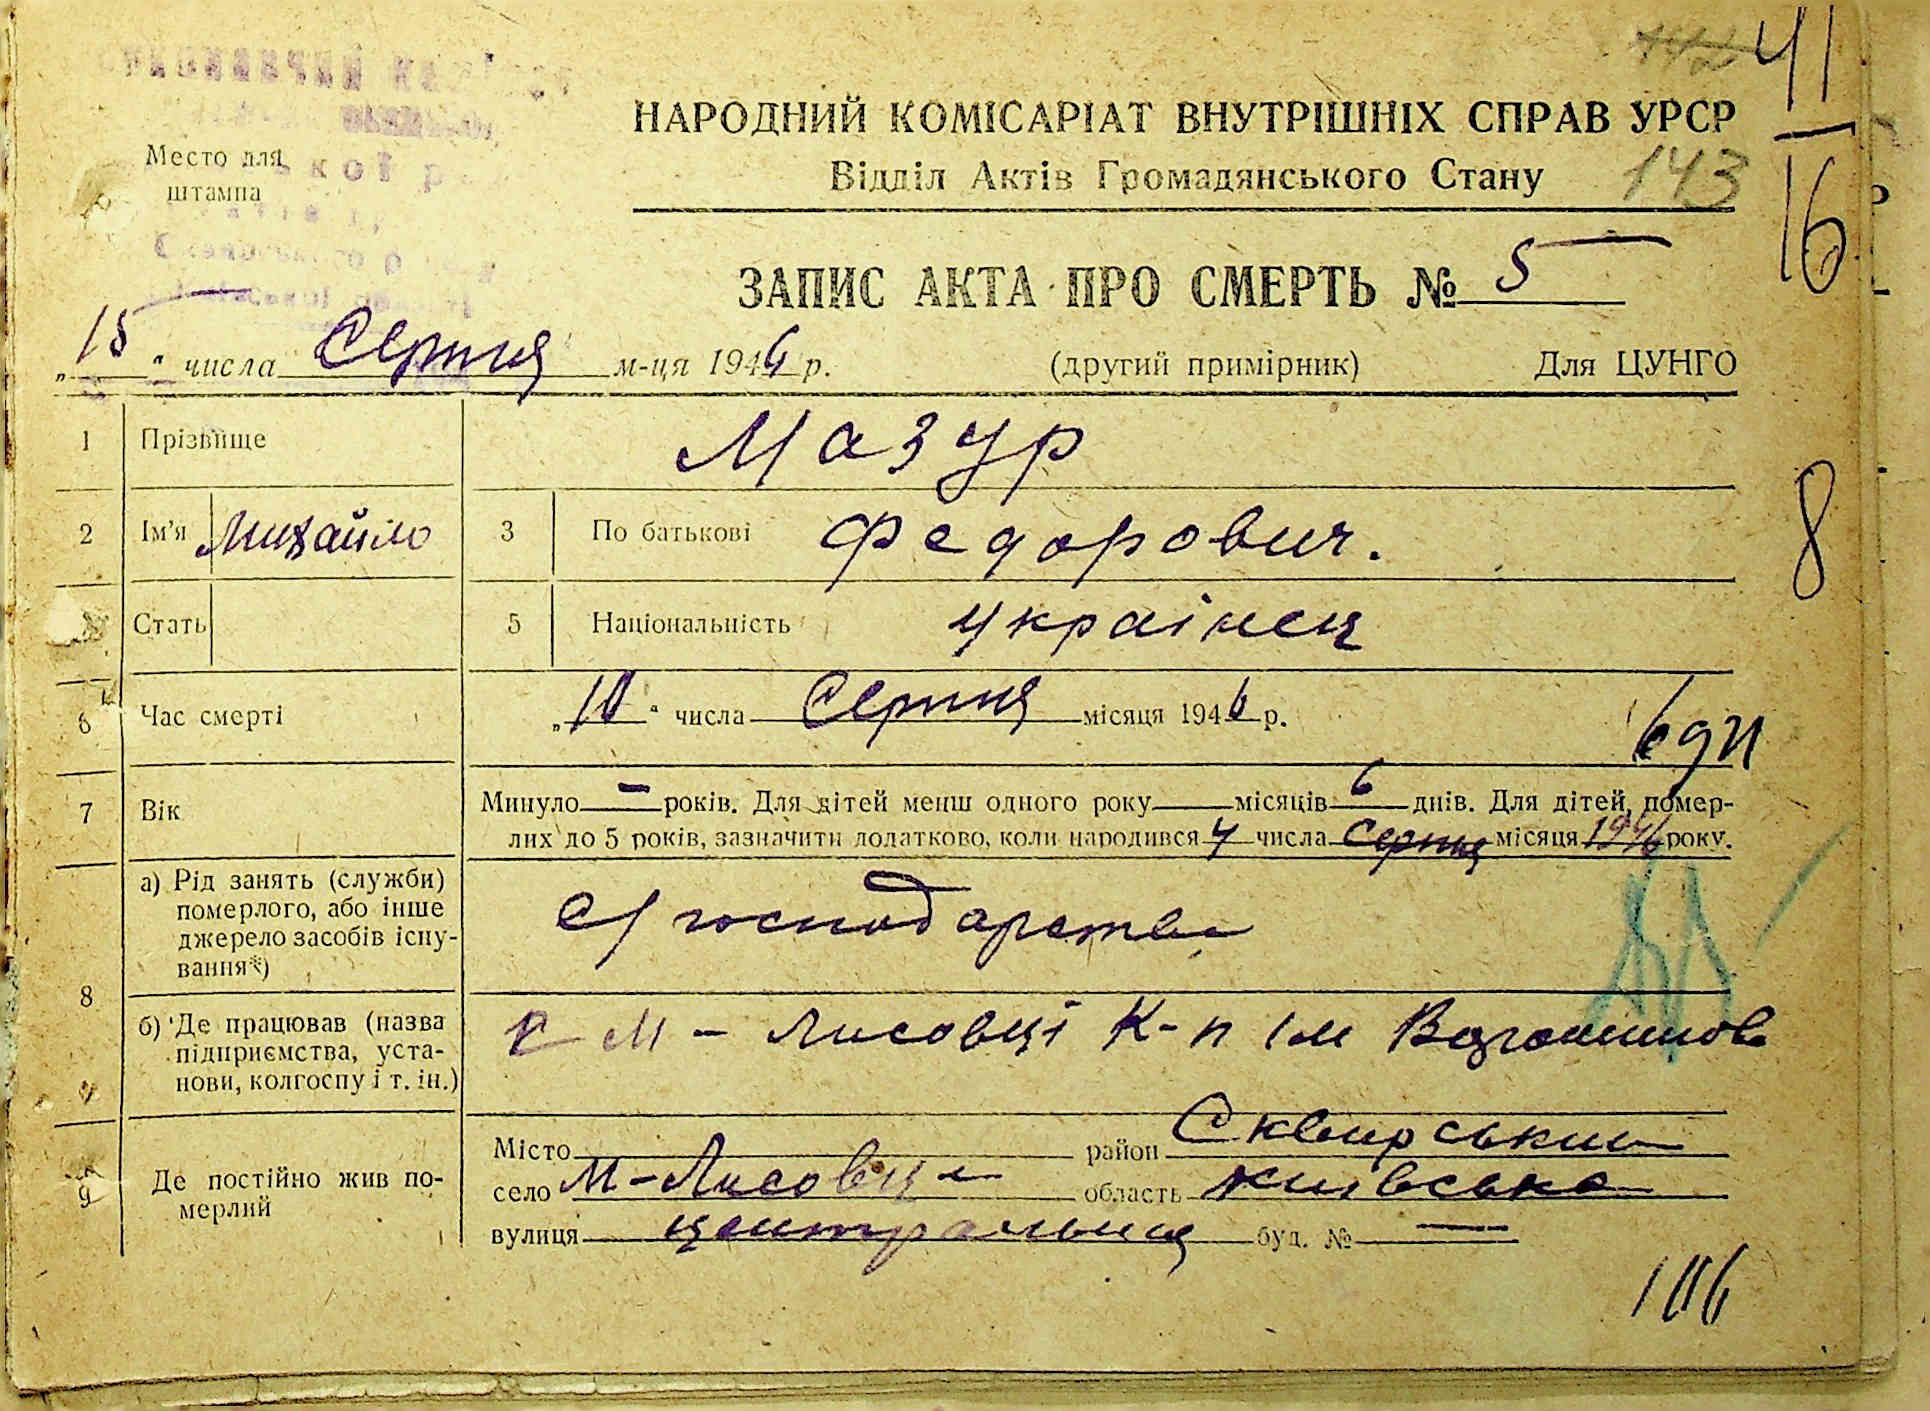 142 41
НАРОДНИЙ КОМІСАРІАТ ВНУТРІШНІХ СПРАВ УРСР
Место для штампа
Відділ Актів Громадянського Стану 143
16
ЗАПИС АКТА ПРО СМЕРТЬ № 5
„15“ числа Серпня м-ця 1946 р. (другий примірник) Для ЦУНГО
1 Прізвище Мазур
2 Ім’я Михайло 3 По батькові Федорович.
8
Стать 5 Національність українец
6 Час смерті „10“ числа Серпня місяця 1946 р.
6 дн
7 Вік Минуло — років. Для дітей менш одного року місяців 6 днів. Для дітей, помер-
лих до 5 років, зазначити додатково, коли народився 4 числа Серпня місяця 1946 року.
8 а) Рід занять (служби) померлого, або інше джерело засобів існу-вання*) с/господарство
б) Де працював (назва підприємства, уста-нови, колгоспу і т. ін.) с М-Лисовці К-п Ім Ворошилова
9 Де постійно жив по-мерлий
Місто район Сквирський
село М-Лисовці область Київська
вулиця центральна буд. № —
106